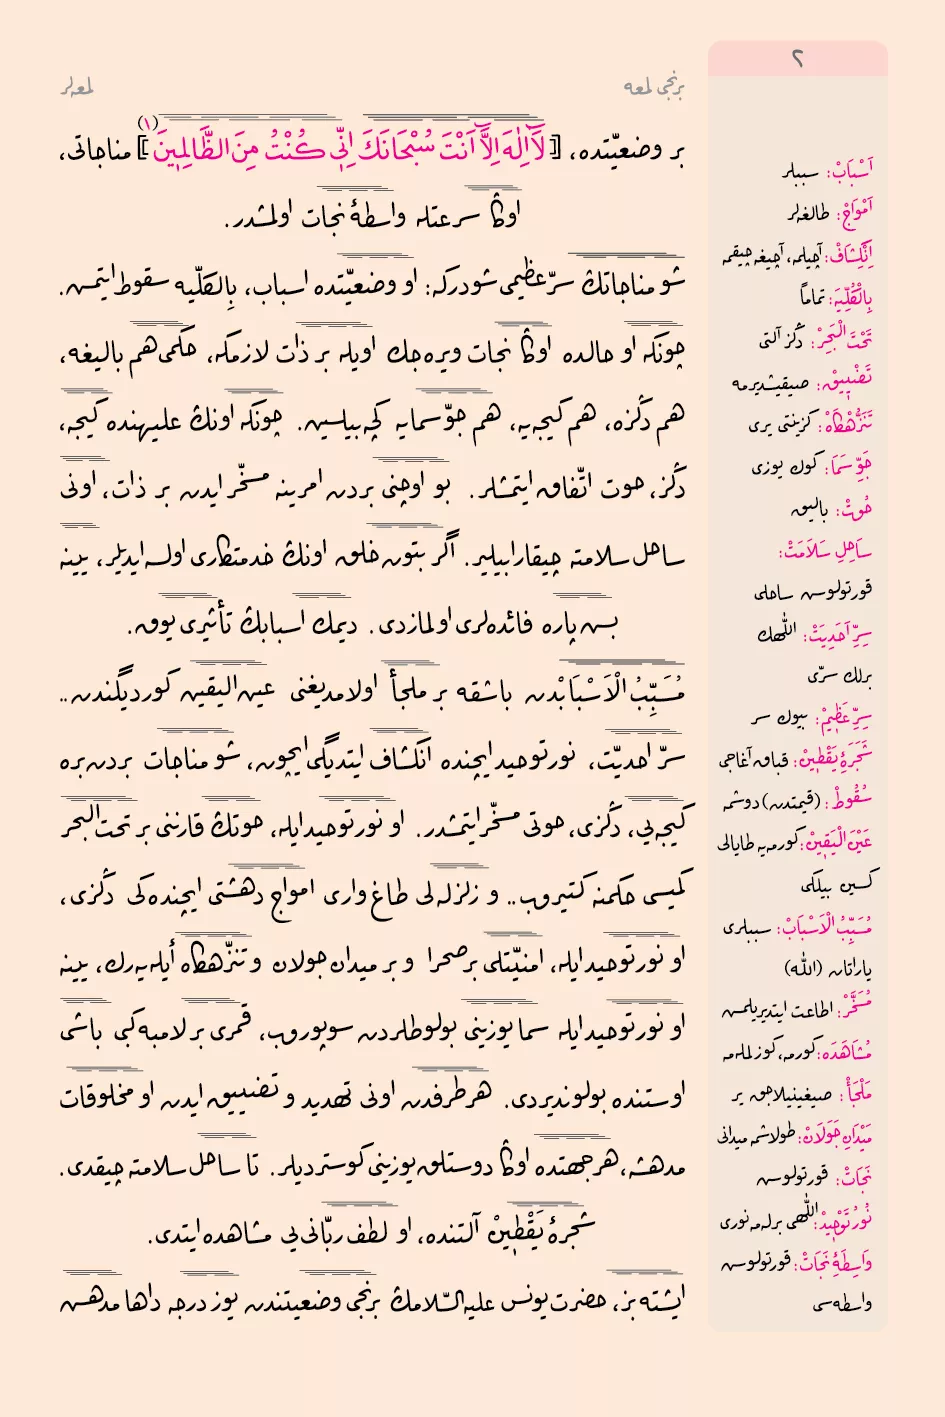 ٢
برنجى لمعه
لمعه‌لر
بر وضعيّتده، [لَٓا اِلٰهَ اِلَّٓا اَنْتَ سُبْحَانَكَ اِنّ۪ى كُنْتُ مِنَ الظَّالِم۪ينَ](١) مناجاتى،
اوڭا سرعتله واسطۀ نجات اولمشدر.
شو مناجاتڭ سرّ عظيمى شودركه: او وضعيّتده اسباب، بِالكلّيه سقوط ايتمس.
چونكه او حالده اوڭا نجات ويره‌جك اويله بر ذات لازمكه، حكمى هم باليغه،
هم دڭزه، هم كيجه‌يه، هم جوّ سمايه كچه‌بيلسين. چونكه اونڭ عليهنده كيجه،
دڭز، حوت اتّفاق ايتمشلر. بو اوچنى بردن امرينه مسخّر ايدن بر ذات، اونى
ساحل سلامته چيقارابيلير. اگر بتون خلق اونڭ خدمتڭارى اولسه ايديلر، يينه
بش پاره فائده‌لرى اولمازدى. ديمك اسبابڭ تأثيرى يوق.
مُسَبِّبُ الْاَسْبَابْدن باشقه بر ملجأ اولامديغنى عين اليقين كورديگندن..
سرّ احديّت، نور توحيد ايچنده انكشاف ايتديگى ايچون، شو مناجات بردن بره
كيجه‌يى، دڭزى، حوتى مسخّر ايتمشدر. او نور توحيد ايله، حوتڭ قارننى بر تحت البحر
كميسى حكمنه كتيروب.. و زلزله لى طاغ وارى امواج دهشتى ايچنده‌كى دڭزى،
او نور توحيد ايله، امنيّتلى بر صحرا و بر ميدان جولان و تنزّهگاه أيله‌يه‌رك، يينه
او نور توحيد ايله سما يوزينى بولوطلردن سوپوروب، قمرى بر لامبه كبى باشى
اوستنده بولونديردى. هر طرفدن اونى تهديد و تضييق ايدن او مخلوقات
مدهشه، هر جهتده اوڭا دوستلق يوزينى كوسترديلر. تا ساحل سلامته چيقدى.
شجرۀ يَقْط۪ينْ آلتنده، او لطف ربّانى‌يى مشاهده ايتدى.
ايشته بز، حضرت يونس عليه السّلامڭ برنجى وضعيتندن يوز درجه داها مدهش
اَسْبَابْ: سببلر
اَمْوَاجْ: طالغه‌لر
اِنْكِشَافْ: آچيلمه، آچيغه چيقمه
بِالْكُلِّيَه: تماماً
تَحْتَ الْبَحِرْ: دڭز آلتى
تَضْي۪يقْ: صيقيشديرمه
تَنَزُّهْگاهْ: كزينتى يرى
جَوِّ سَمَا: كوك يوزى
حُوتْ: باليق
سَاحِلِ سَلَامَتْ:
قورتولوش ساحلى
سِرِّ اَحَدِيَتْ: اللّٰهڭ
برلك سرّى
سِرِّ عَظ۪يمْ: بيوك سر
شَجَرَۀِ يَقْط۪ينْ: قباق آغاجى
سُقُوطْ: (قيمتدن) دوشمه
عَيْنَ الْيَق۪ينْ: كورمه‌يه طايالى
كسين بيلكى
مُسَبِّبُ الْاَسْبَابْ: سببلرى
ياراتان (اللّٰه)
مُسَخَّرْ: اطاعت ايتديريلمش
مُشَاهَدَه: كورمه، كوزلمله‌مه
مَلْجَأْ: صيغينيلاجق ير
مَيْدَانِ جَوَلَانْ: طولاشمه ميدانى
نَجَاتْ: قورتولوش
نُورُ تَوْح۪يدْ: اللّٰهى برله‌مه نورى
وَاسِطَۀِ نَجَاتْ: قورتولوش
واسطه‌سى